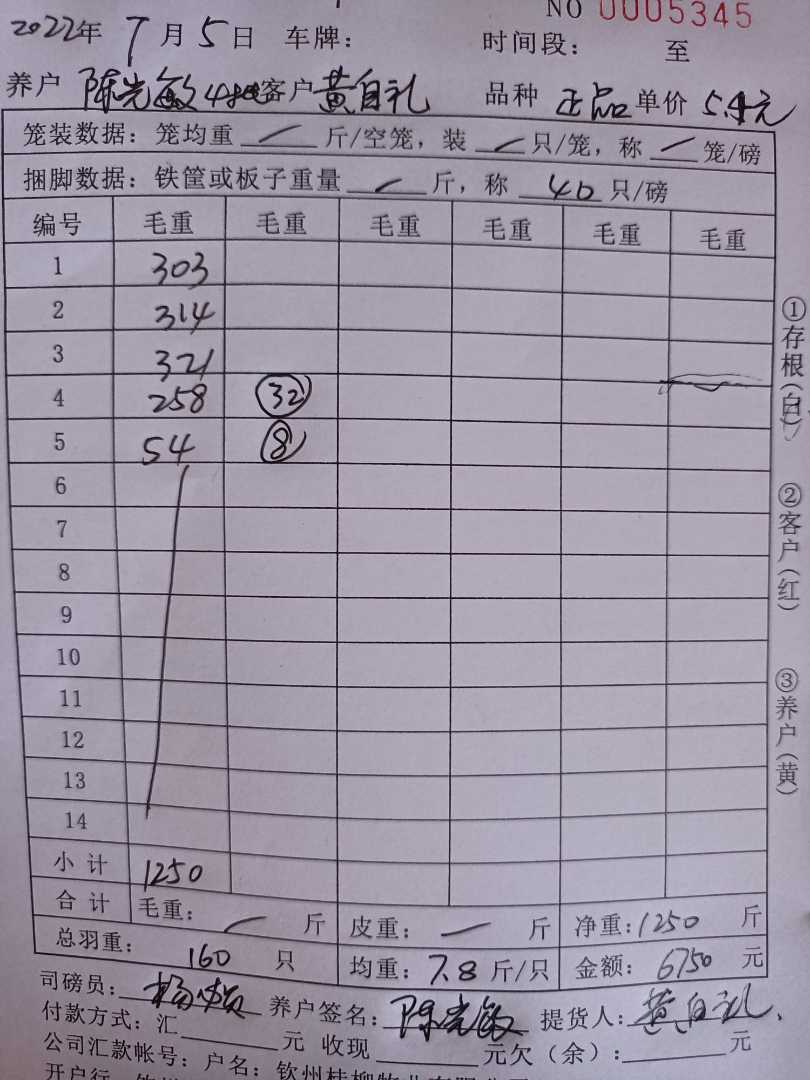 NO 0005345
2022年 7月5日 车牌： 时间段： 至
养户 陈光敏 客户 黄自礼 品种 正品 单价 5.4元
笼装数据：笼均重 — 斤/空笼，装 — 只/笼，称 — 笼/磅
捆脚数据：铁筐或板子重量 — 斤，称 40 只/磅
编号 毛重 毛重 毛重 毛重 毛重 毛重
1 303
2 314
3 321
4 258 32
5 54 8
6
7
8
9
10
11
12
13
14
小计 1250
合计 毛重： — 斤 皮重： — 斤 净重：1250 斤
总羽重： 160 只 均重：7.8 斤/只 金额：6750 元
司磅员： 养户签名：陈光敏 提货人：黄自礼
付款方式：汇 元 收现 元欠（余）： 元
公司汇款帐号：户名：钦州桂柳牧业有限公司
开户行
①存根（白）
②客户（红）
③养户（黄）